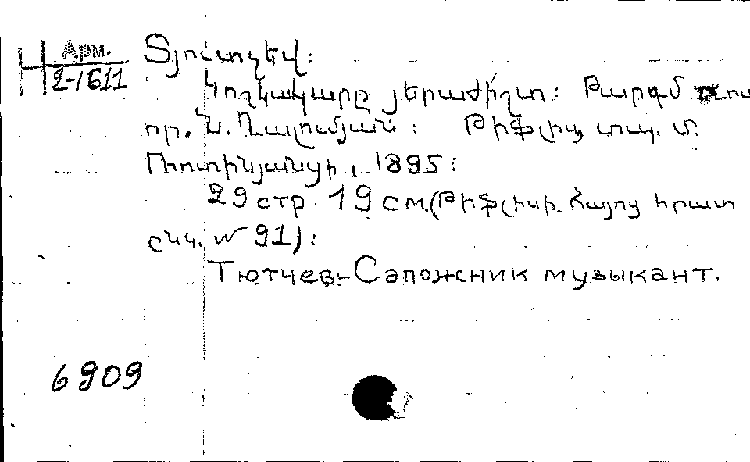 Арм.
2-1611
Տյուտչեվ:
Կոշկակարը յերաժիշտ: Թարգմ ռուս
որ. Ն. Ղալամյան: Թիֆլիս, տպ. Մ.
Ռոտինյանցի, 1895:
29 стр. 19 см. (Թիֆլիսի Հայոց հրատ
ընկ. № 91):
Тютчев-Сапожник музыкант.
6909